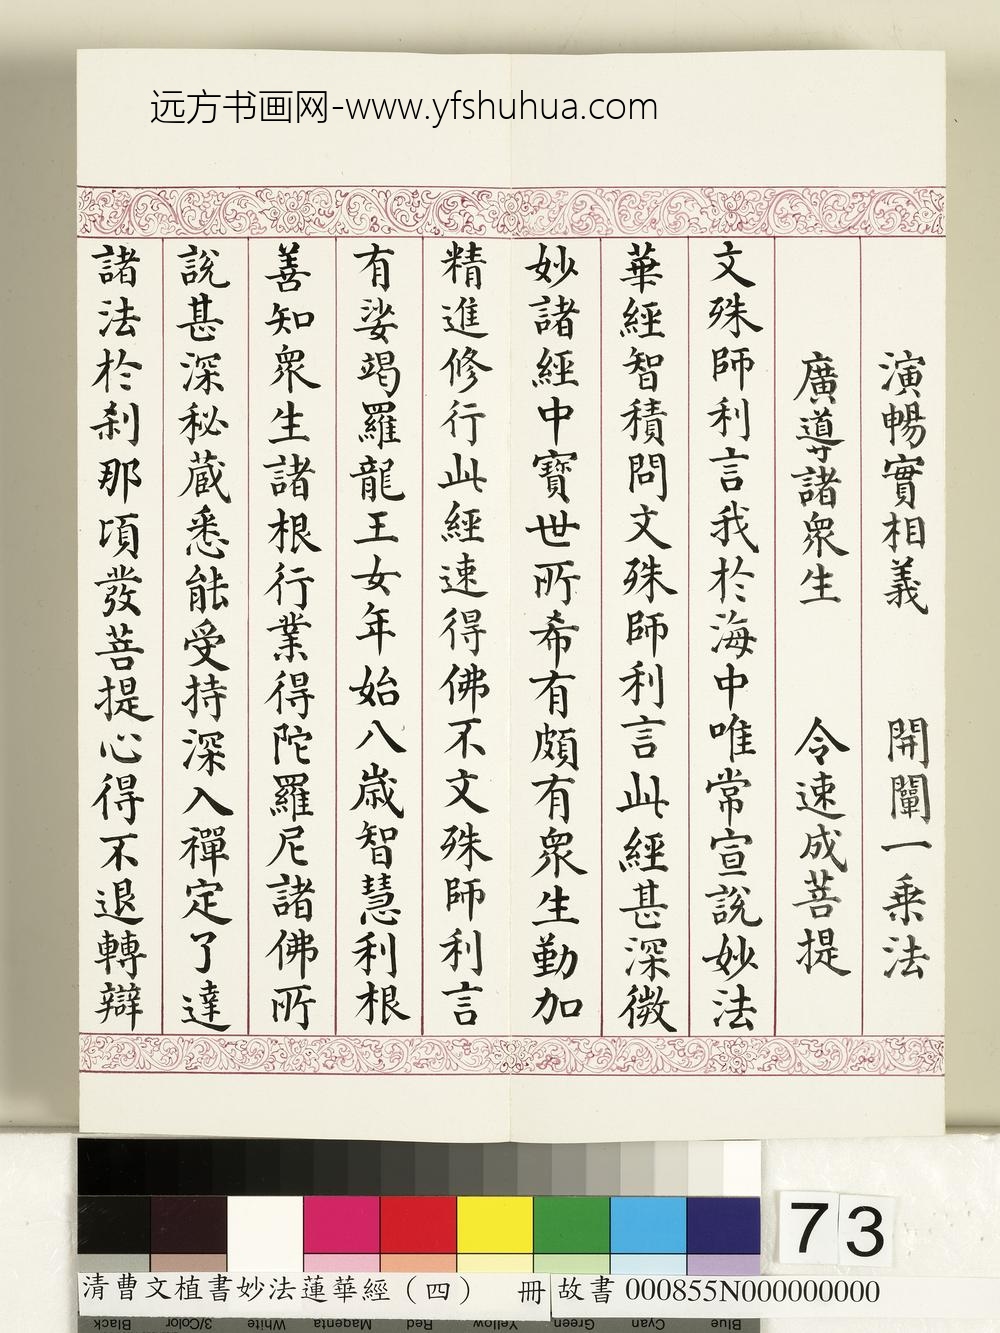 远方书画网-www.yfshuhua.com
演暢實相義　開闡一乗法
廣導諸衆生　令速成菩提
文殊師利言我於海中唯常宣說妙法
華經智積問文殊師利言此經甚深微
妙諸經中寶世所希有頗有衆生勤加
精進修行此經速得佛不文殊師利言
有娑竭羅龍王女年始八歳智慧利根
善知衆生諸根行業得陀羅尼諸佛所
說甚深秘蔵悉能受持深入禪定了達
諸法於刹那頃發菩提心得不退轉辯
73
清曹文植書妙法蓮華經（四）　冊
故書 000855N000000000
Black
3/Color
White
Magenta
Red
Yellow
Green
Cyan
Blue